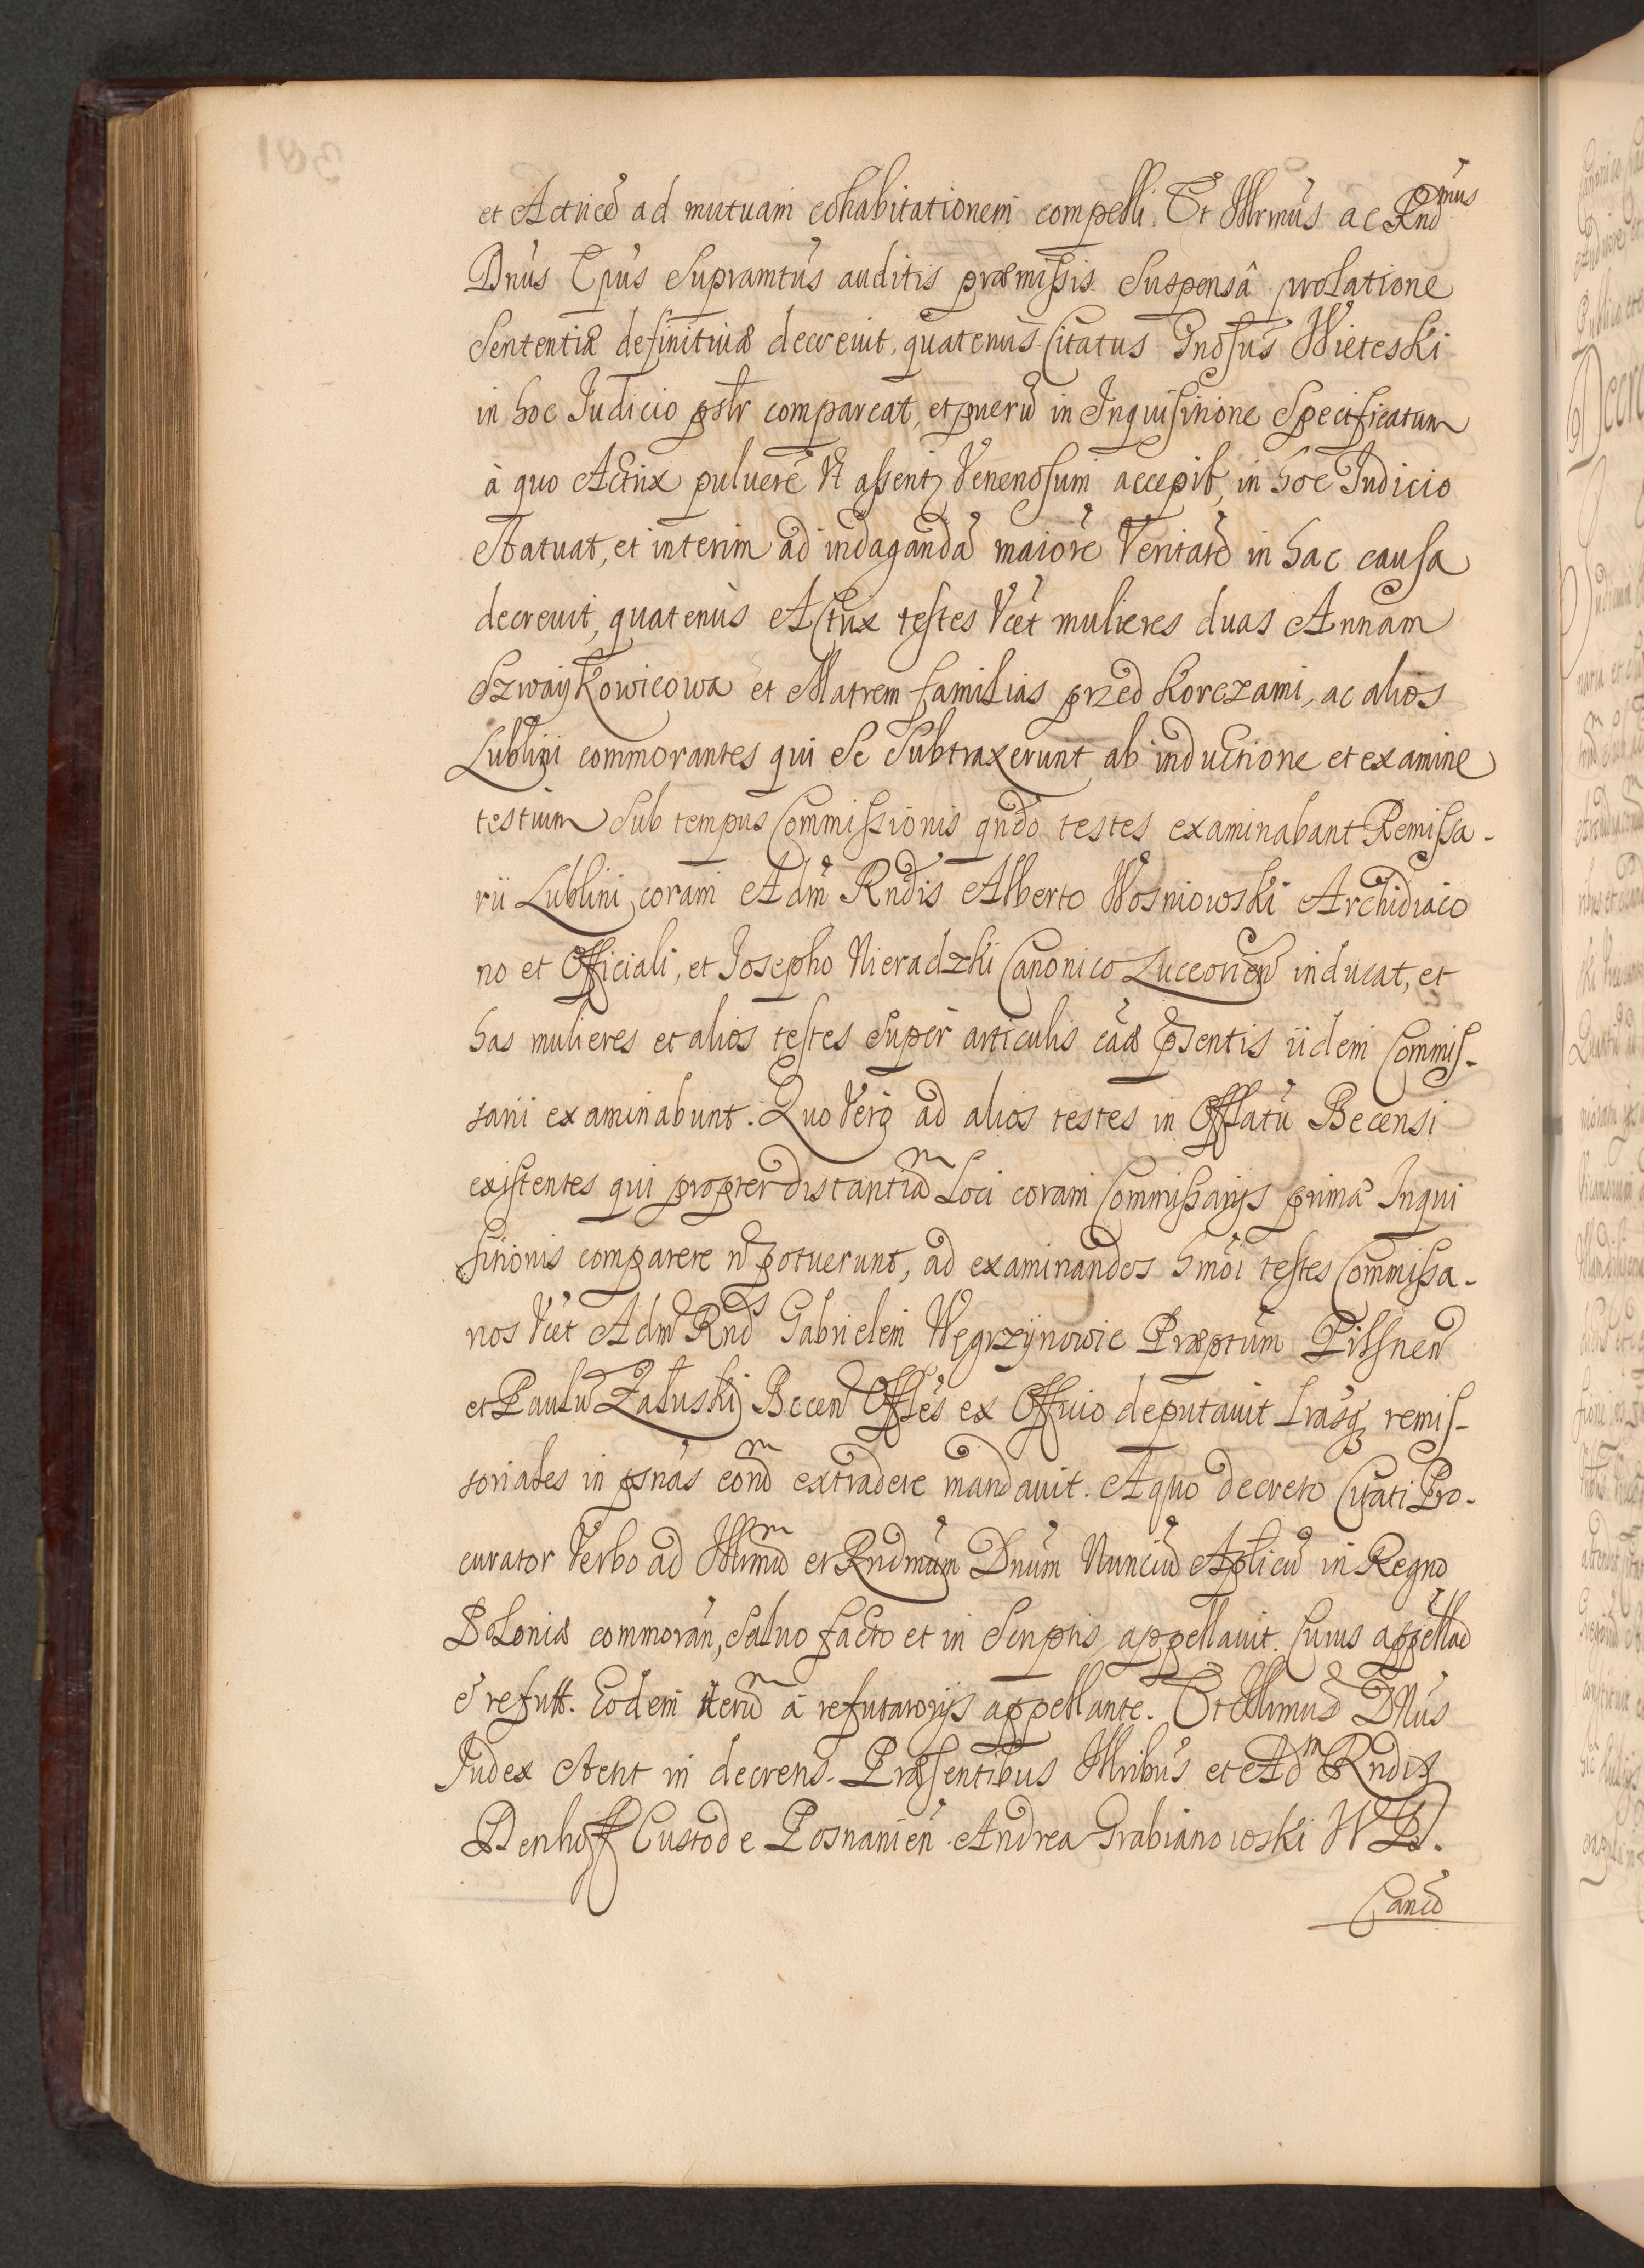 et Actricē ad mutuam cohabitationem compelli. Et Illrmus ac Rndmus
Dnus Epus supramtus auditis præmissis suspensâ prolatione
sententiæ definitiuæ decreuit, quatenus Citatus Gnosus Wieteski
in hoc Judicio pslr compareat, et puerū in Inquisitione specificatum
à quo Actrix puluerē ut assent venenosum accepit, in hoc Judicio
statuat, et interim ad indagandā maiorē veritatē in hac causa
decreuit, quatenus Actrix testes vcet mulieres duas Annam
Szwaykowicowa et Matrem familias przed korczami, ac alios
Lublini commorantes qui se subtraxerunt ab inductione et examine
testium sub tempus Commissionis qndo testes examinabant Remissa-
rii Lublini, coram Adm Rndis Alberto Wosniowski Archidiaco
no et Officiali, et Josepho Nieradzki Canonico Luceorien inducat, et
has mulieres et alios testes super articulis cāæ pꝛsentis iidem Commis-
sarii examinabunt. Quo vero ad alios testes in Offlatū Becensi
existentes qui propter distantiam Loci coram Commissarijs primæ Inqui
sitionis comparere n̄ potuerunt, ad examinandos hmoi testes Commissa-
rios vcet Adm Rnds Gabrielem Węgrzynowic Præptum Pilsnen
et Paulū Załuski Becen Offles ex Officio deputauit Lrasq remis-
soriales in psnas eordm extradere mandauit. A quo decreto Citati Pro-
curator verbo ad Illrmum et Rndmum Dnum Nunciū Aplicū in Regno
Poloniæ commoran, saluo facto et in scriptis appellauit. Cuius appellaō
ē refutt. Eodem iterum à refutatorijs appellante. Et Illrmus Dnus
Judex stetit in decretis. Præsentibus Illribus et Adm Rndis
Denhoff Custode Posnanien. Andrea Grabianowski W Ps.
Canco